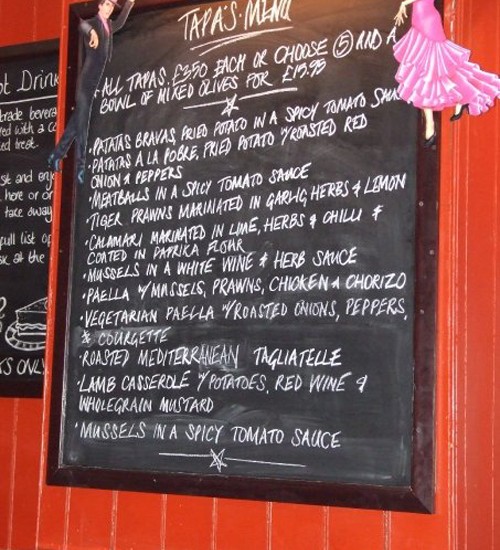 TAPA'S MENU
ALL TAPAS £3.50 EACH OR CHOOSE 5 AND A
BOWL OF MIXED OLIVES FOR £15.95
• PATATAS BRAVAS, FRIED POTATO IN A SPICY TOMATO SAUCE
• PATATAS A LA POBRE, FRIED POTATO W/ ROASTED RED
ONION & PEPPERS
• MEATBALLS IN A SPICY TOMATO SAUCE
• TIGER PRAWNS MARINATED IN GARLIC, HERBS & LEMON
• CALAMARI MARINATED IN LIME, HERBS & CHILLI &
COATED IN PAPRIKA FLOUR
• MUSSELS IN A WHITE WINE & HERB SAUCE
• PAELLA W/ MUSSELS, PRAWNS, CHICKEN & CHORIZO
• VEGETARIAN PAELLA W/ ROASTED ONIONS, PEPPERS,
& COURGETTE
• ROASTED MEDITERRANEAN TAGLIATELLE
• LAMB CASSEROLE W/ POTATOES, RED WINE &
WHOLEGRAIN MUSTARD
• MUSSELS IN A SPICY TOMATO SAUCE
ot Drink
bevera
ed with a co
ed treat.
st and enj
here or or
take away
full list of
at the
S ONLY